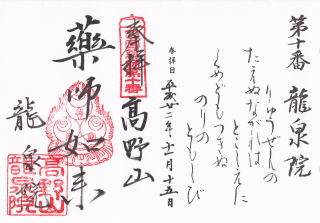 第十番 龍泉院
りゅうせんの
たえぬながれは
とこしえに
くめどもつきぬ
のりの
ともしび
参拝日 平成廿二年十一月十五日
奉拝 高野山
藥師如来
龍泉院
高野山
龍泉院